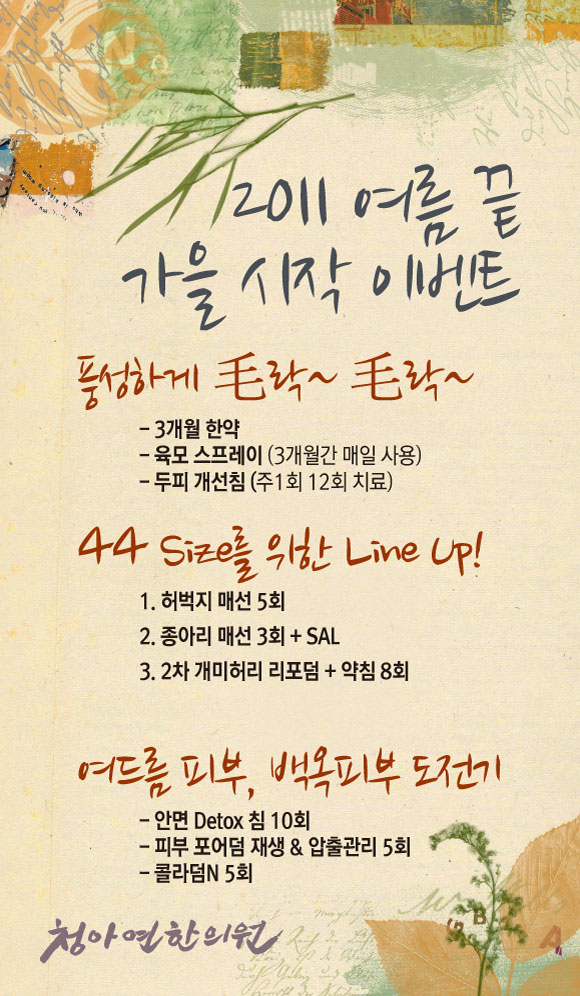 2011 여름 끝
가을 시작 이벤트
풍성하게 毛락~ 毛락~
- 3개월 한약
- 육모 스프레이 (3개월간 매일 사용)
- 두피 개선침 (주1회 12회 치료)
44 Size를 위한 Line Up!
1. 허벅지 매선 5회
2. 종아리 매선 3회 + SAL
3. 2차 개미허리 리포덤 + 약침 8회
여드름 피부, 백옥피부 도전기
- 안면 Detox 침 10회
- 피부 포어덤 재생 & 압출관리 5회
- 콜라덤N 5회
B
A
청아연한의원